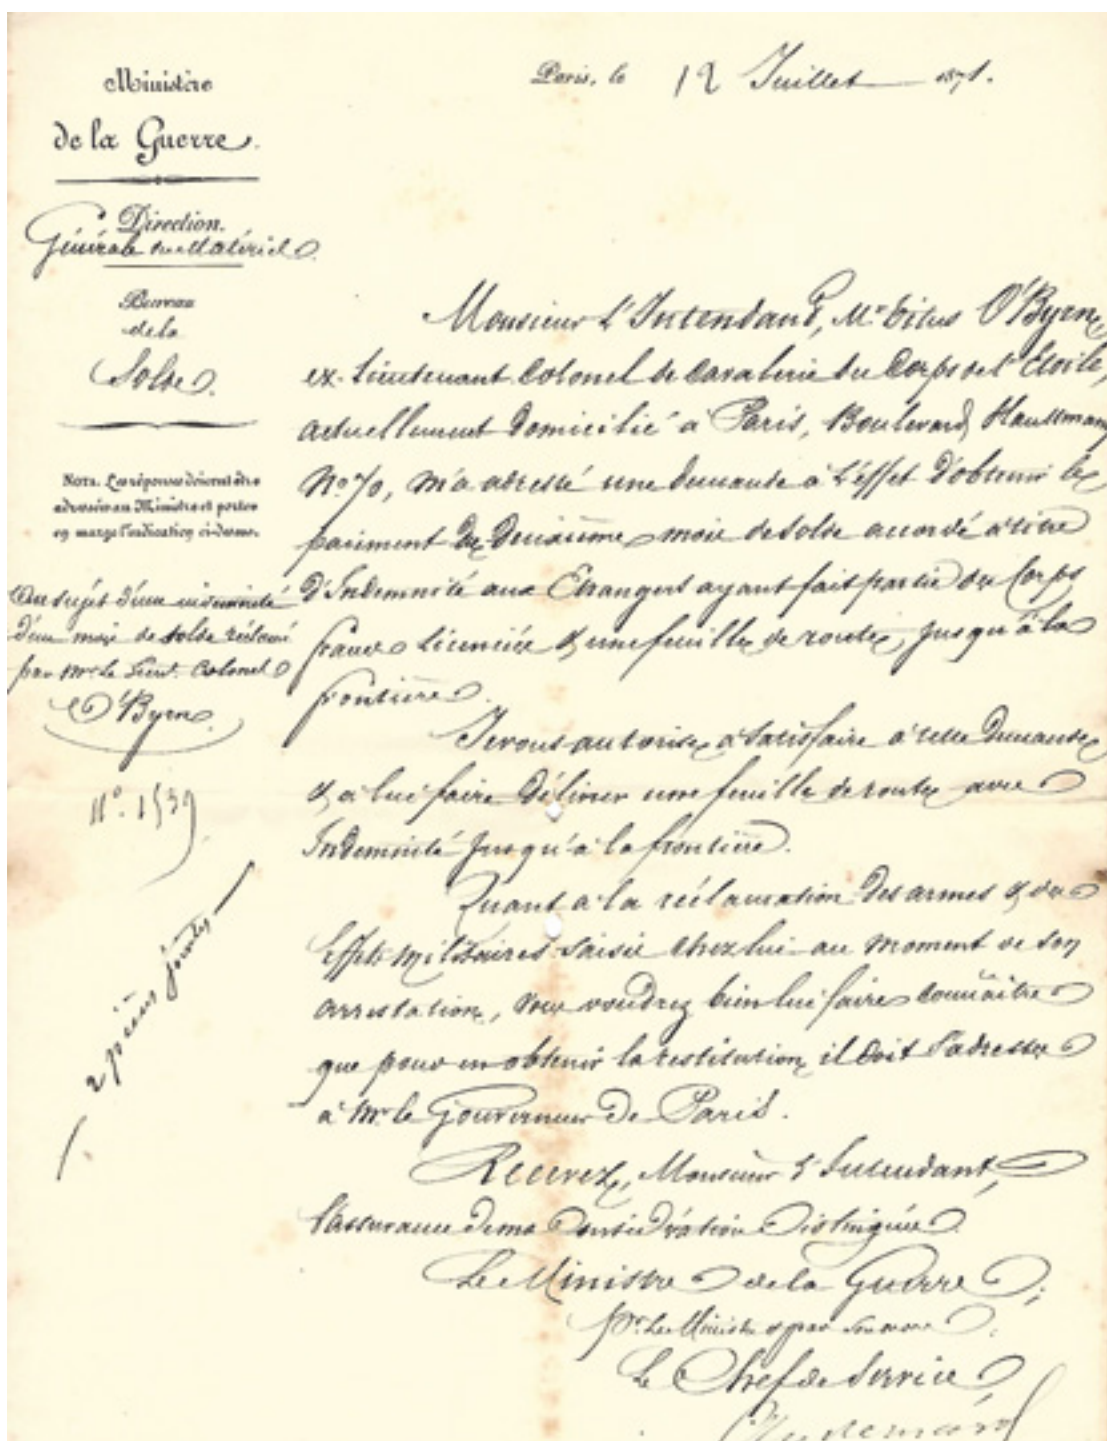 Ministère
de la Guerre.
Direction.
Générale du Matériel
Bureau
de la
Solde.
NOTA. Les réponses doivent être
adressées au Ministre et porter
en marge l'indication ci-dessus.
Au sujet d'une indemnité
d'un mois de solde réclamé
par Mr. le Lieut. Colonel
O'Byrn
N°. 1539
2 pièces jointes
Paris, le 12 Juillet 1871.
Monsieur l'Intendant, Mr. O'Byrn,
ex-Lieutenant Colonel de Cavalerie du Corps de l'Etoile,
actuellement domicilié à Paris, Boulevard Haussmann
No. 70, m'a adressé une demande à l'effet d'obtenir le
paiment du deuxième mois de solde accordé à titre
d'Indemnité aux Etrangers ayant fait partie du Corps
francs licenciés & une feuille de route, jusqu'à la
frontière.
Je vous autorise à satisfaire à cette demande
& à lui faire délivrer une feuille de route avec
Indemnité jusqu'à la frontière.
Quant à la réclamation des armes & des
Effets Militaires saisis chez lui au moment de son
arrestation, vous voudrez bien lui faire connaître
que pour en obtenir la restitution il doit s'adresser
à Mr. le Gouverneur de Paris.
Recevez, Monsieur l'Intendant,
l'assurance de ma Considération Distinguée
Le Ministre de la Guerre,
Pr. le Ministre & par son ordre
Le Chef de Service,